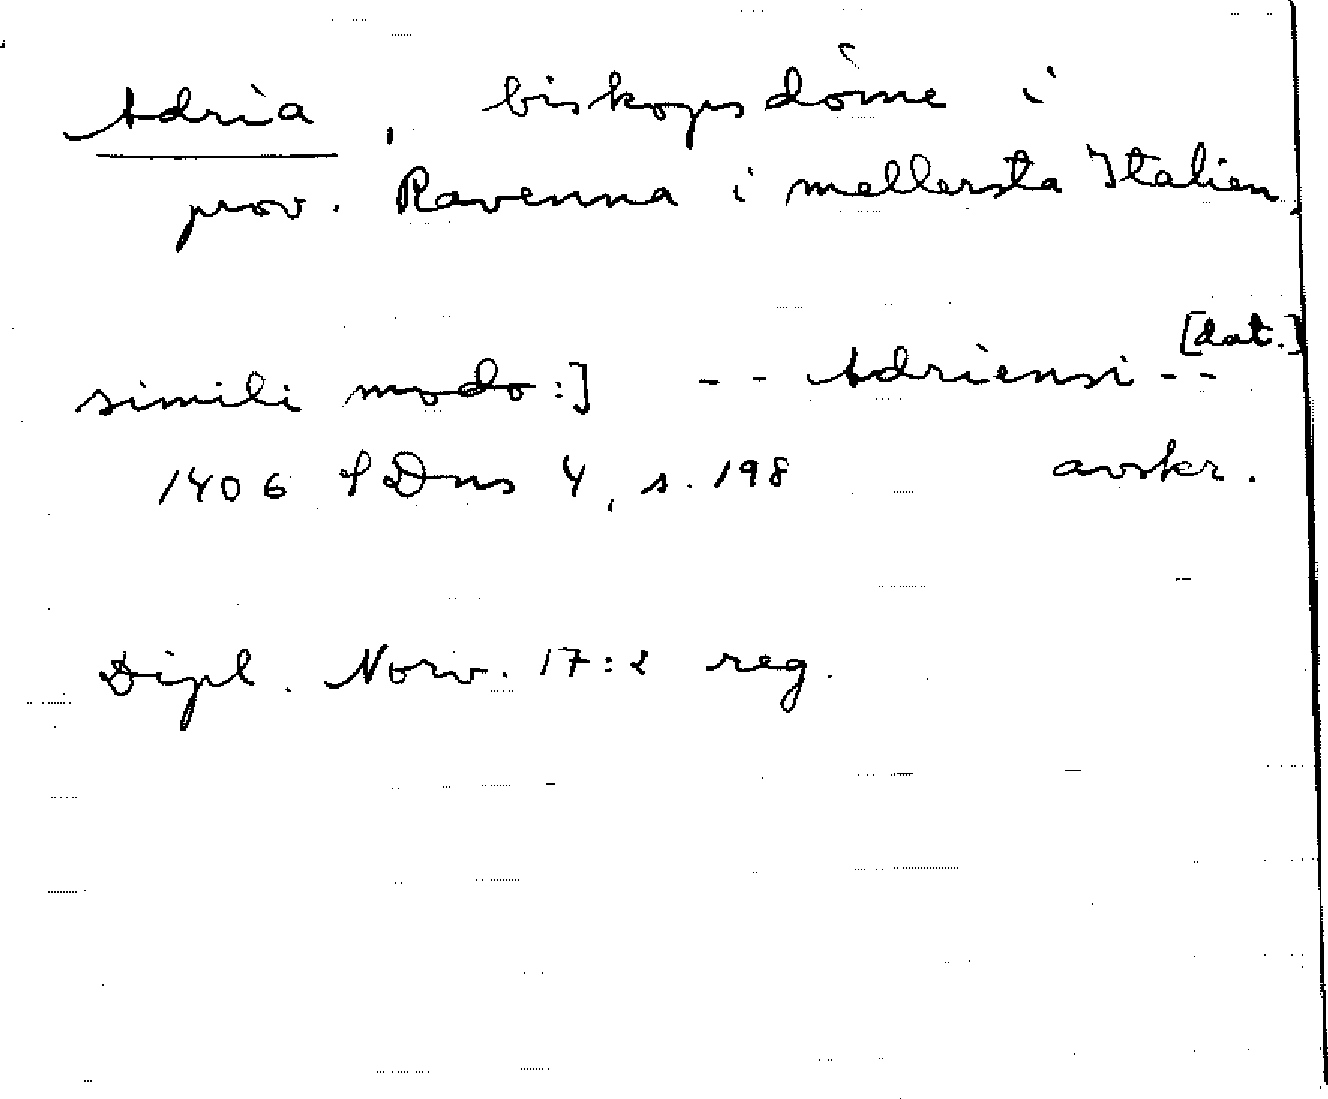 Adria, biskopsdöme i
prov. Ravenna i mellersta Italien.
simili modo:] -- Adriensi [dat.] --
1406 SDns 4, s. 198 avskr.
Dipl. Norv. 17:2 reg.